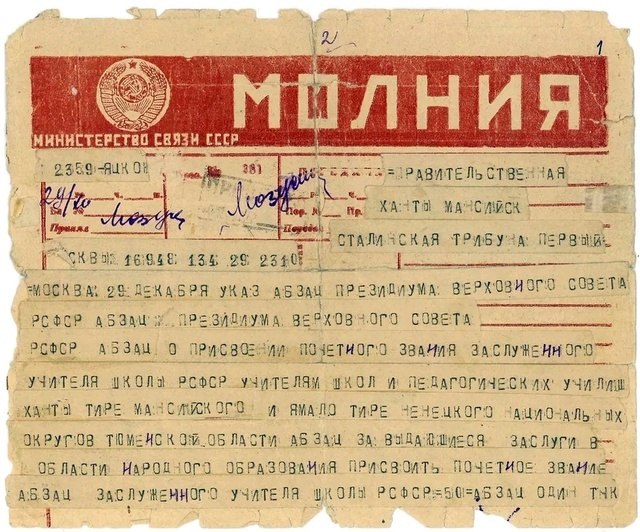 2
1
МОЛНИЯ
МИНИСТЕРСТВО СВЯЗИ СССР
2359 ЯЦКОИ
381
=ПРАВИТЕЛЬСТВЕННАЯ
ХАНТЫ МАНСИЙСК
СТАЛИНСКАЯ ТРИБУНА ПЕРВЫЙ=
29/XII
СКВЫ 16948 134 29 2310
=МОСКВА 29 ДЕКАБРЯ УКАЗ АБЗАЦ ПРЕЗИДИУМА ВЕРХОВНОГО СОВЕТА
РСФСР АБЗАЦ ПРЕЗИДИУМА ВЕРХОВНОГО СОВЕТА
РСФСР АБЗАЦ О ПРИСВОЕНИИ ПОЧЕТНОГО ЗВАНИЯ ЗАСЛУЖЕННОГО
УЧИТЕЛЯ ШКОЛЫ РСФСР УЧИТЕЛЯМ ШКОЛ И ПЕДАГОГИЧЕСКИХ УЧИЛИЩ
ХАНТЫ ТИРЕ МАНСИЙСКОГО И ЯМАЛО ТИРЕ НЕНЕЦКОГО НАЦИОНАЛЬНЫХ
ОКРУГОВ ТЮМЕНСКОЙ ОБЛАСТИ АБЗАЦ ЗА ВЫДАЮЩИЕСЯ ЗАСЛУГИ В
ОБЛАСТИ НАРОДНОГО ОБРАЗОВАНИЯ ПРИСВОИТЬ ПОЧЕТНОЕ ЗВАНИЕ
АБЗАЦ ЗАСЛУЖЕННОГО УЧИТЕЛЯ ШКОЛЫ РСФСР=50=АБЗАЦ ОДИН ТЧК